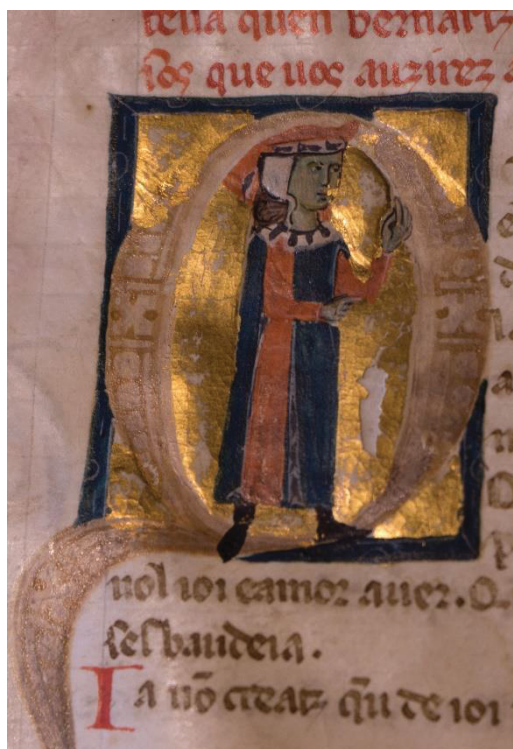 tella quen bernartz
sos que uos auzirez a
Q
uol ioi eamor auer. Q
sesbaudeia.
Ia nō creatz q̄u de ioi